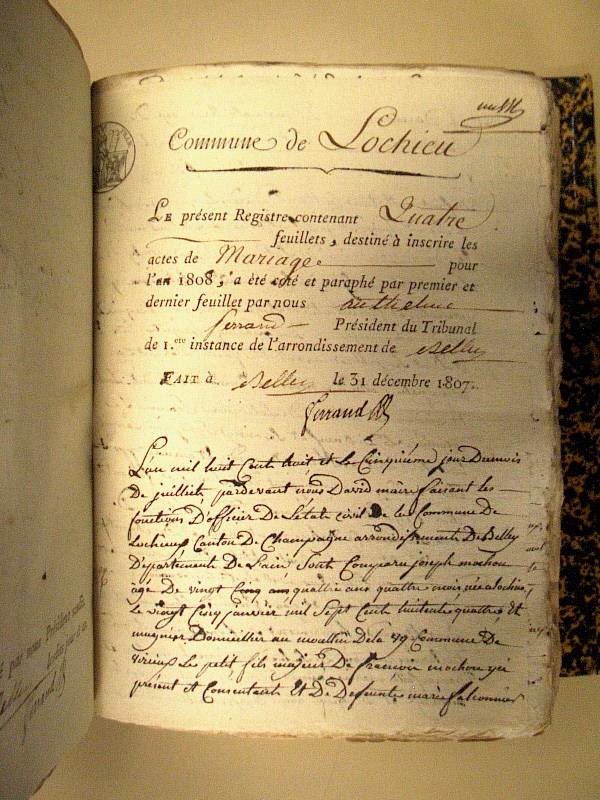 Commune de Lochieu
LE présent Registre contenant Quatre
feuillets, destiné à inscrire les
actes de Mariage pour
l'an 1808, a été coté et paraphé par premier et
dernier feuillet par nous anthelme
ferrand Président du Tribunal
de 1.ere instance de l'arrondissement de Belley
FAIT à Belley le 31 décembre 1807.
ferrand
L'an mil huit Cent huit et le Cinquième jour Du mois
De juillet, pardevant nous David maire faisant les
fonctions D'officier De L'état civil de la Commune De
Lochieu Canton De Champagne arrondissement De Belley
Département De L'ain, Sont Comparu joseph mochon
âgé De vingt Cinq ans quatre ans quatre mois née a lochieu
Le vingt Cinq janvier mil Sept Cent huitente quatre, et
mugnier Domicillier au moullin De la Commune De
virieux Le petit fils majeur De françoi mochon yci
présent et Consentant Et De Defeunte marie falconnier